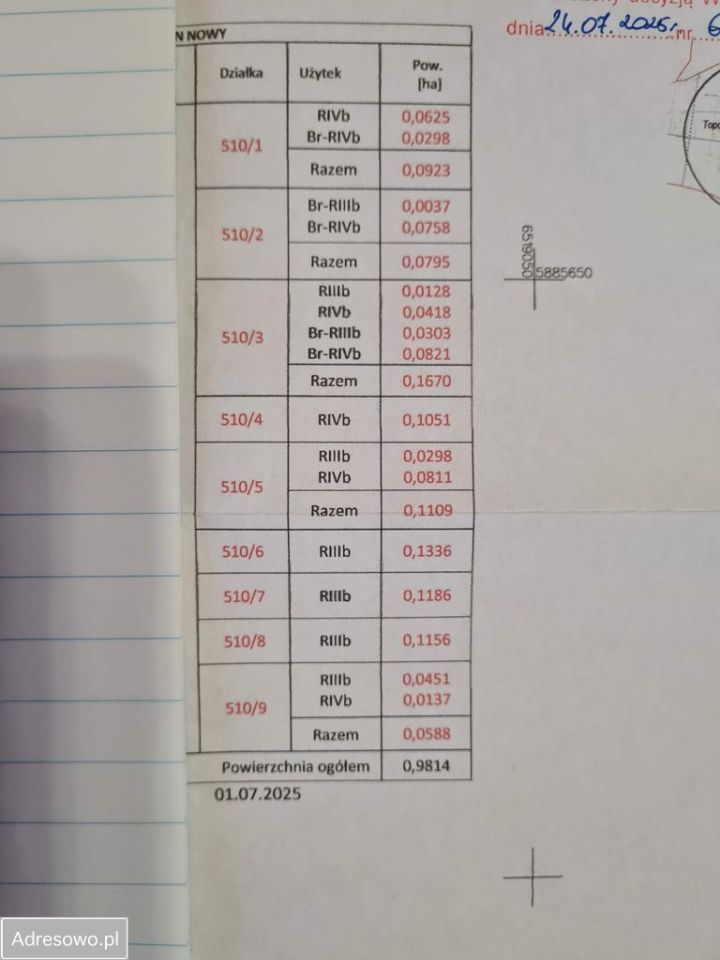 dnia 24.07.2025r. nr. 6
N NOWY
Działka Użytek Pow. [ha]
510/1
RIVb 0,0625
Br-RIVb 0,0298
Razem 0,0923
510/2
Br-RIIIb 0,0037
Br-RIVb 0,0758
Razem 0,0795
510/3
RIIIb 0,0128
RIVb 0,0418
Br-RIIIb 0,0303
Br-RIVb 0,0821
Razem 0,1670
510/4 RIVb 0,1051
510/5
RIIIb 0,0298
RIVb 0,0811
Razem 0,1109
510/6 RIIIb 0,1336
510/7 RIIIb 0,1186
510/8 RIIIb 0,1156
510/9
RIIIb 0,0451
RIVb 0,0137
Razem 0,0588
Powierzchnia ogółem 0,9814
01.07.2025
6519050
5885650
Adresowo.pl